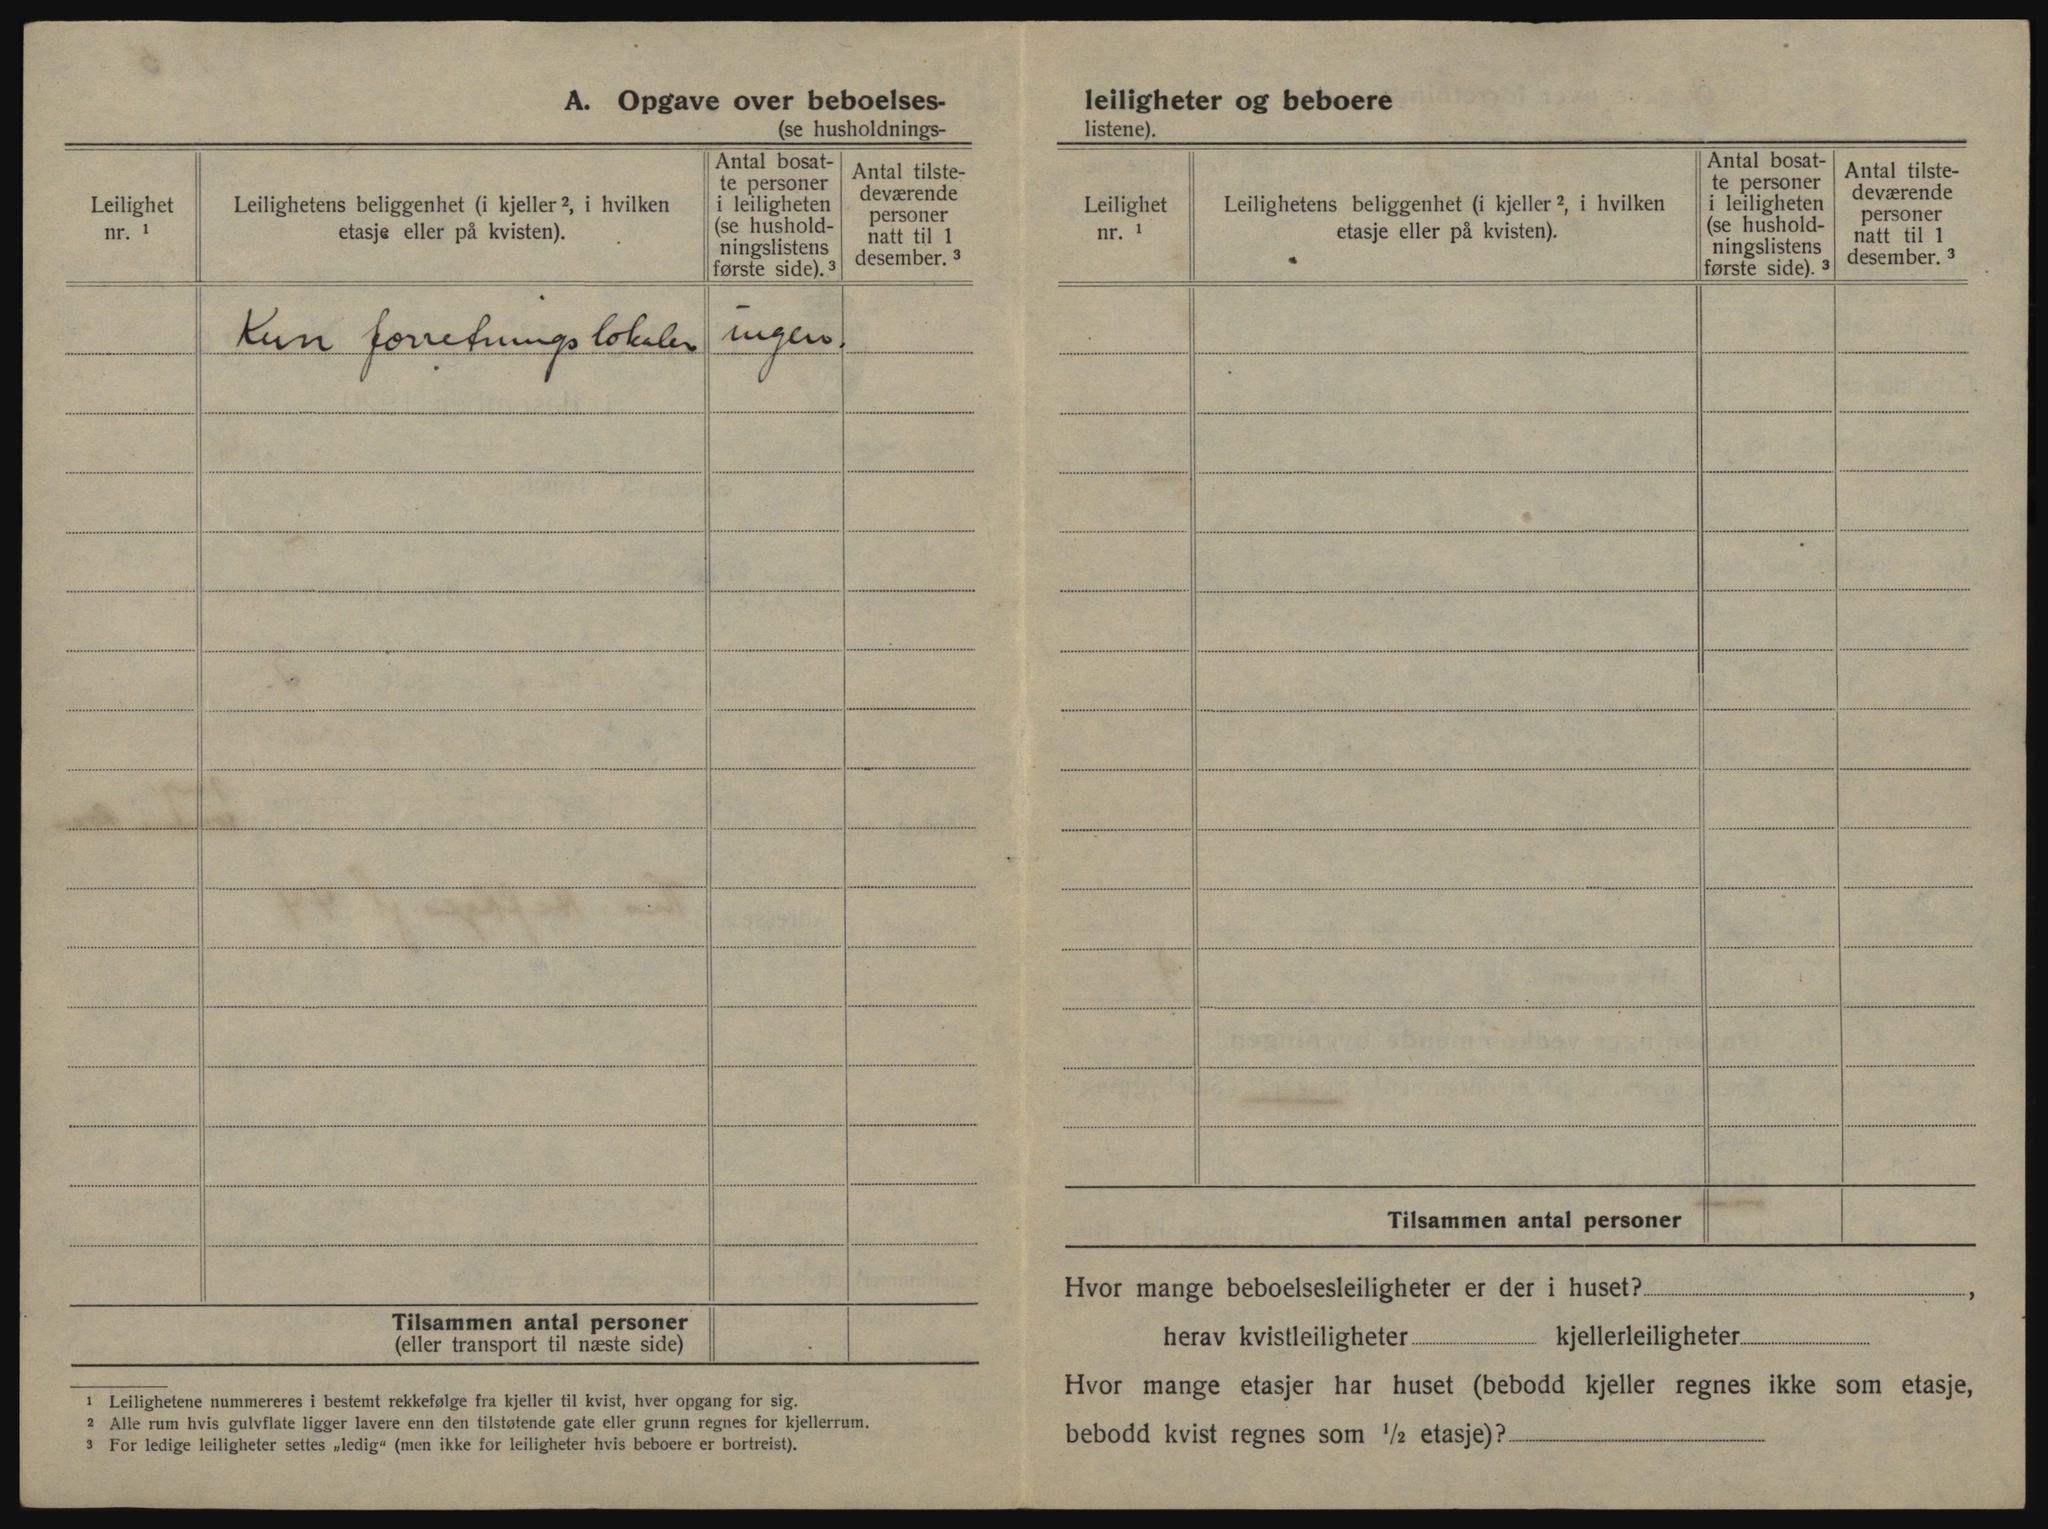 A. Opgave over beboelses-
(se husholdnings-
Leilighet nr. ¹
Leilighetens beliggenhet (i kjeller ², i hvilken
etasje eller på kvisten).
Antal bosat-
te personer
i leiligheten
(se hushold-
ningslistens
første side). ³
Antal tilste-
deværende
personer
natt til 1
desember. ³
Kun forretningslokaler ingen.
Tilsammen antal personer
(eller transport til næste side)
¹ Leilighetene nummereres i bestemt rekkefølge fra kjeller til kvist, hver opgang for sig.
² Alle rum hvis gulvflate ligger lavere enn den tilstøtende gate eller grunn regnes for kjellerrum.
³ For ledige leiligheter settes „ledig“ (men ikke for leiligheter hvis beboere er bortreist).
leiligheter og beboere
listene).
Leilighet
nr. ¹
Leilighetens beliggenhet (i kjeller ², i hvilken
etasje eller på kvisten).
Antal bosat-
te personer
i leiligheten
(se hushold-
ningslistens
første side). ³
Antal tilste-
deværende
personer
natt til 1
desember. ³
Tilsammen antal personer
Hvor mange beboelsesleiligheter er der i huset? ,
herav kvistleiligheter kjellerleiligheter
Hvor mange etasjer har huset (bebodd kjeller regnes ikke som etasje,
bebodd kvist regnes som ½ etasje)?